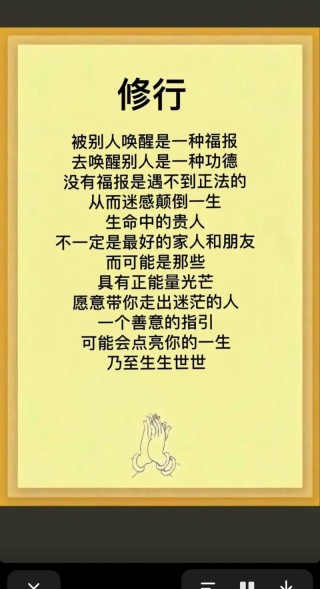 修行
被别人唤醒是一种福报
去唤醒别人是一种功德
没有福报是遇不到正法的
从而迷惑颠倒一生
生命中的贵人
不一定是最好的家人和朋友
而可能是那些
具有正能量光芒
愿意带你走出迷茫的人
一个善意的指引
可能会点亮你的一生
乃至生生世世